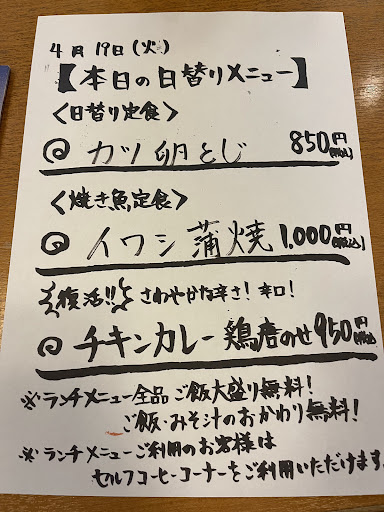 4月19日(火)
【本日の日替りメニュー】
<日替り定食>
◎ カツ卵とじ 850円(税込)
<焼き魚定食>
◎ イワシ蒲焼 1,000円(税込)
復活!! さわやかな辛さ! 辛口!
◎ チキンカレー 鶏唐のせ 950円(税込)
※ランチメニュー全品 ご飯大盛り無料!
ご飯・みそ汁のおかわり無料!
※ランチメニューご利用のお客様は
セルフコーヒーコーナーをご利用いただけます。